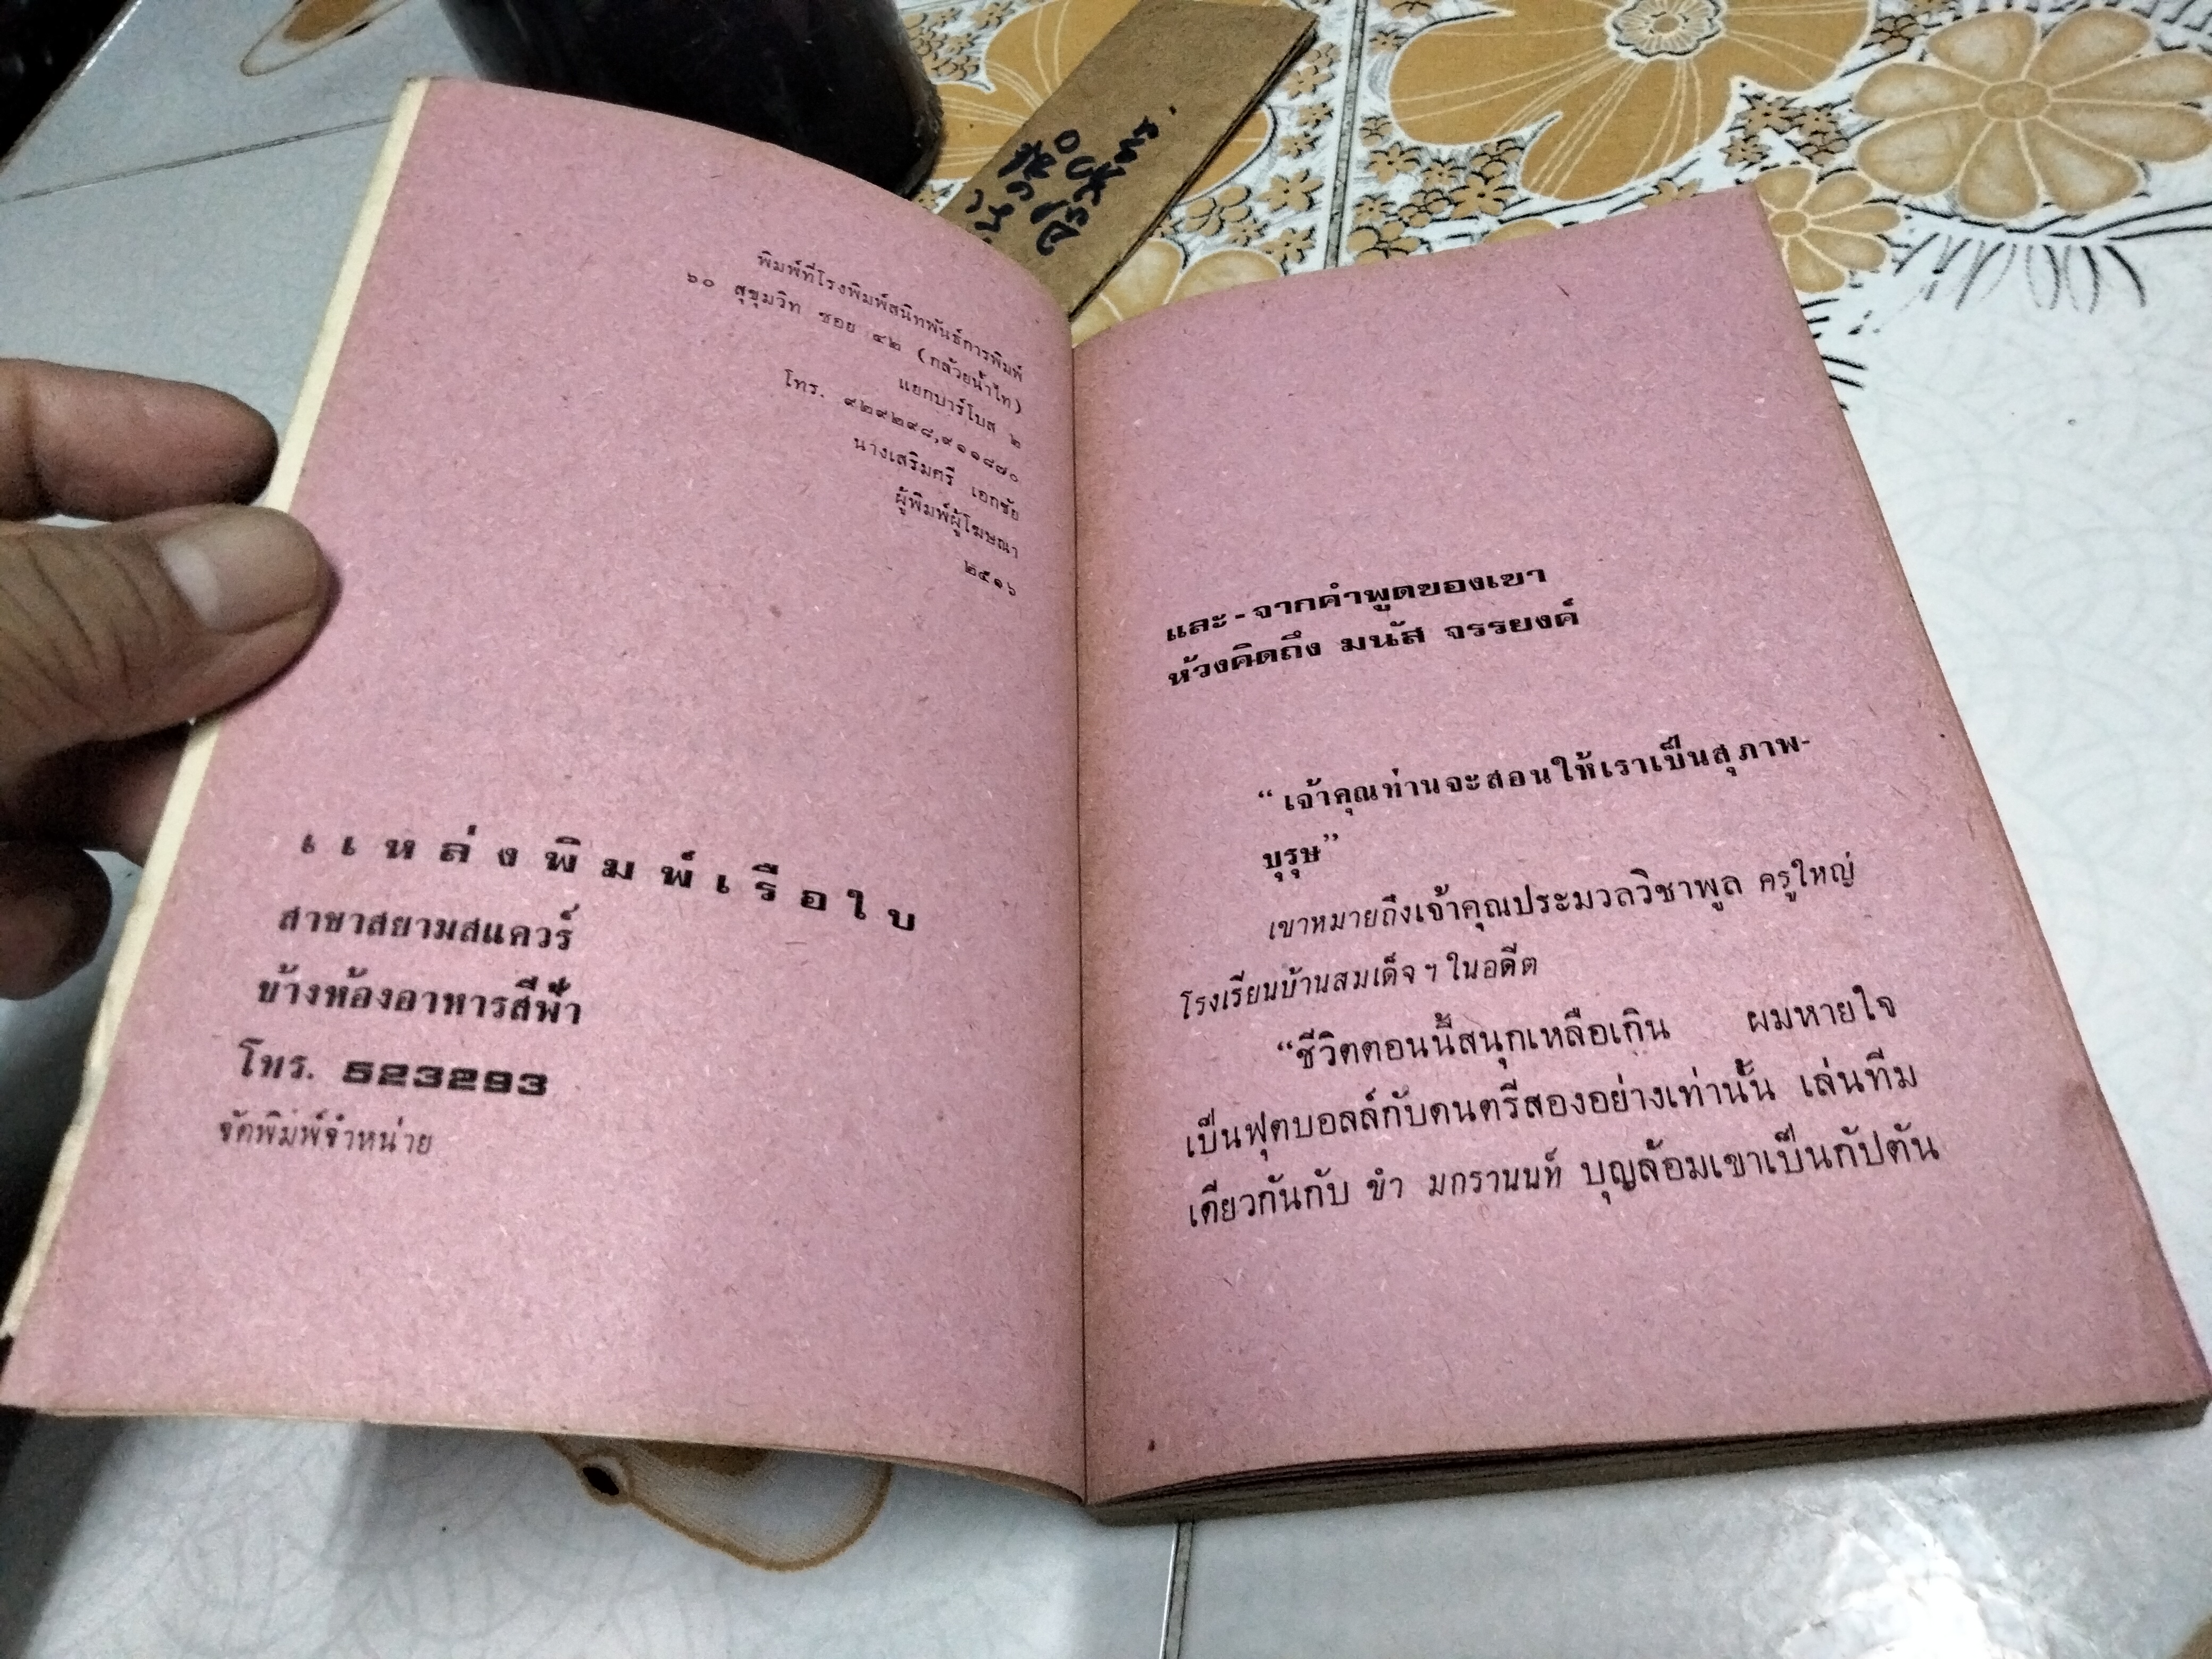 พิมพ์ที่โรงพิมพ์สนิทพันธ์การพิมพ์
๖๐ สุขุมวิท ซอย ๔๒ (กล้วยน้ำไท)
แยกบาร์โบส ๒
โทร. ๙๒๙๒๙๘,๙๑๑๘๗๐
นางเสริมศรี เอกชัย
ผู้พิมพ์ผู้โฆษณา
๒๕๑๖
แหล่งพิมพ์เรือใบ
สาขาสยามสแควร์
ข้างห้องอาหารสีฟ้า
โทร. 523293
จัดพิมพ์จำหน่าย
และ-จากคำพูดของเขา
ห้วงคิดถึง มนัส จรรยงค์
“เจ้าคุณท่านจะสอนให้เราเป็นสุภาพ-
บุรุษ”
เขาหมายถึงเจ้าคุณประมวลวิชาพูล ครูใหญ่
โรงเรียนบ้านสมเด็จฯ ในอดีต
“ชีวิตตอนนี้สนุกเหลือเกิน ผมหายใจ
เป็นฟุตบอลล์กับดนตรีสองอย่างเท่านั้น เล่นทีม
เดียวกันกับ ขำ มกรานนท์ บุญล้อมเขาเป็นกัปตัน